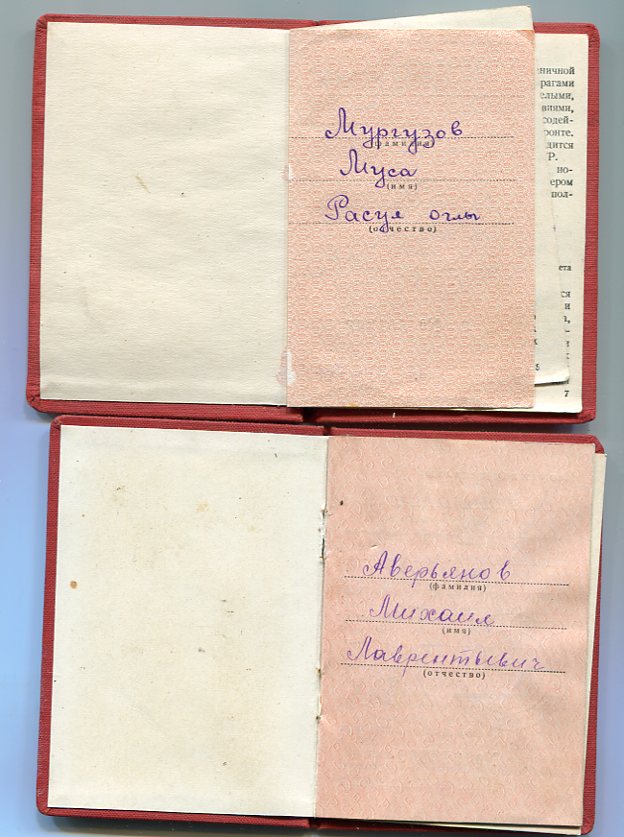 Мургузов
(фамилия)
Муса
(имя)
Расул оглы
(отчество)
ничной
рагами
елыми,
виями,
содей-
ронте.
дится
Р.
но-
ером
пол-
ета
ся
и
а,
–
и
х
5
7
Аверьянов
(фамилия)
Михаил
(имя)
Лаврентьевич
(отчество)